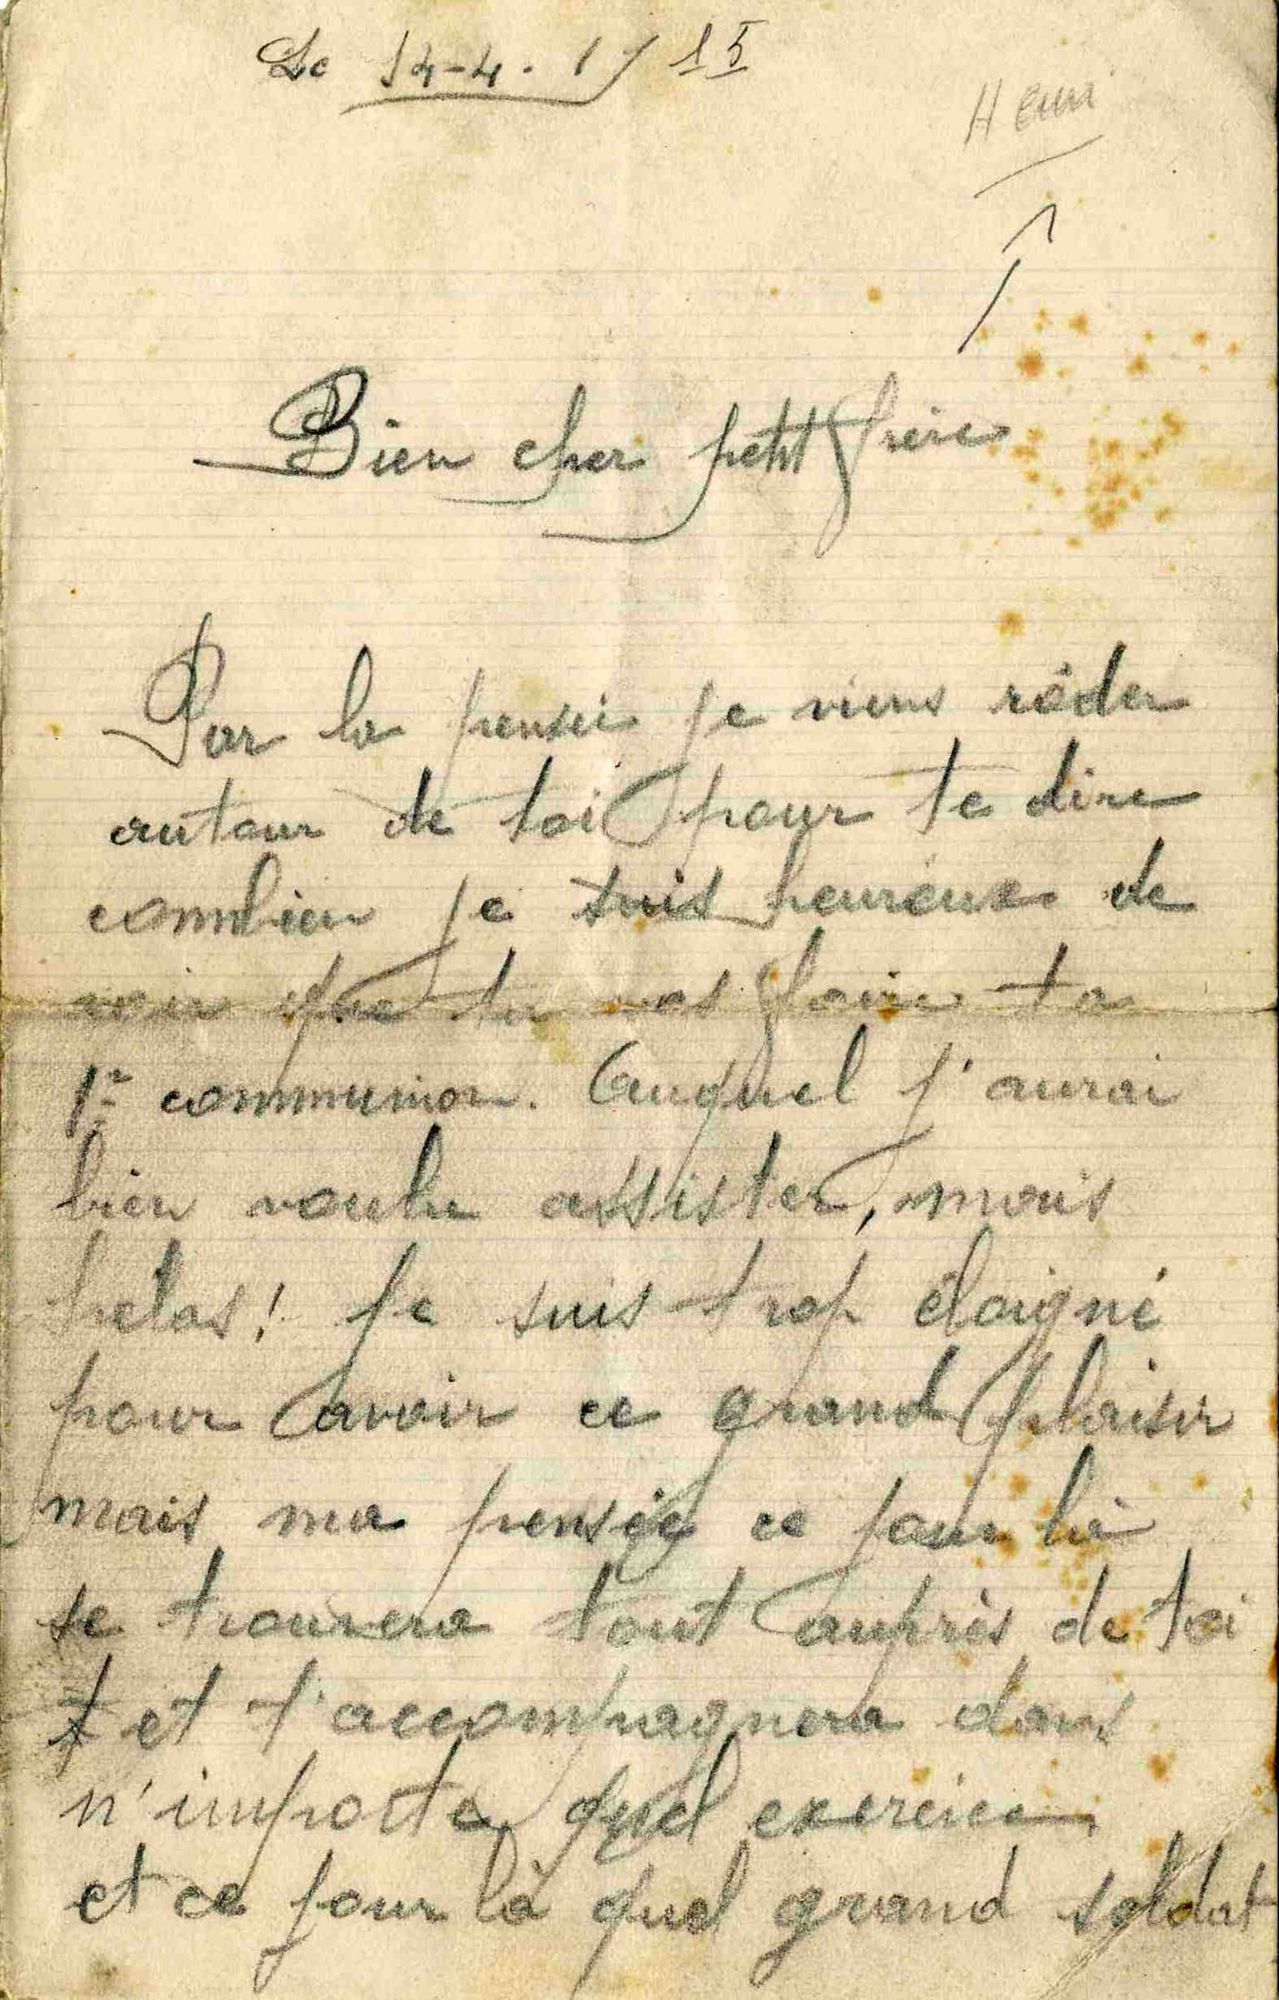 Le 14-4. 1915
Henri
Bien cher petit frère
Par la pensée je viens rôder
autour de toi pour te dire
combien je suis heureux de
voir que tu vas faire ta
1re communion. Auquel j'aurai
bien voulu assister, mais
hélas! Je suis trop éloigné
pour avoir ce grand plaisir
mais ma pensée ce jour là
se trouvera tout auprès de toi
et t'accompagnera dans
n'importe quel exercice
et ce jour là quel grand soldat